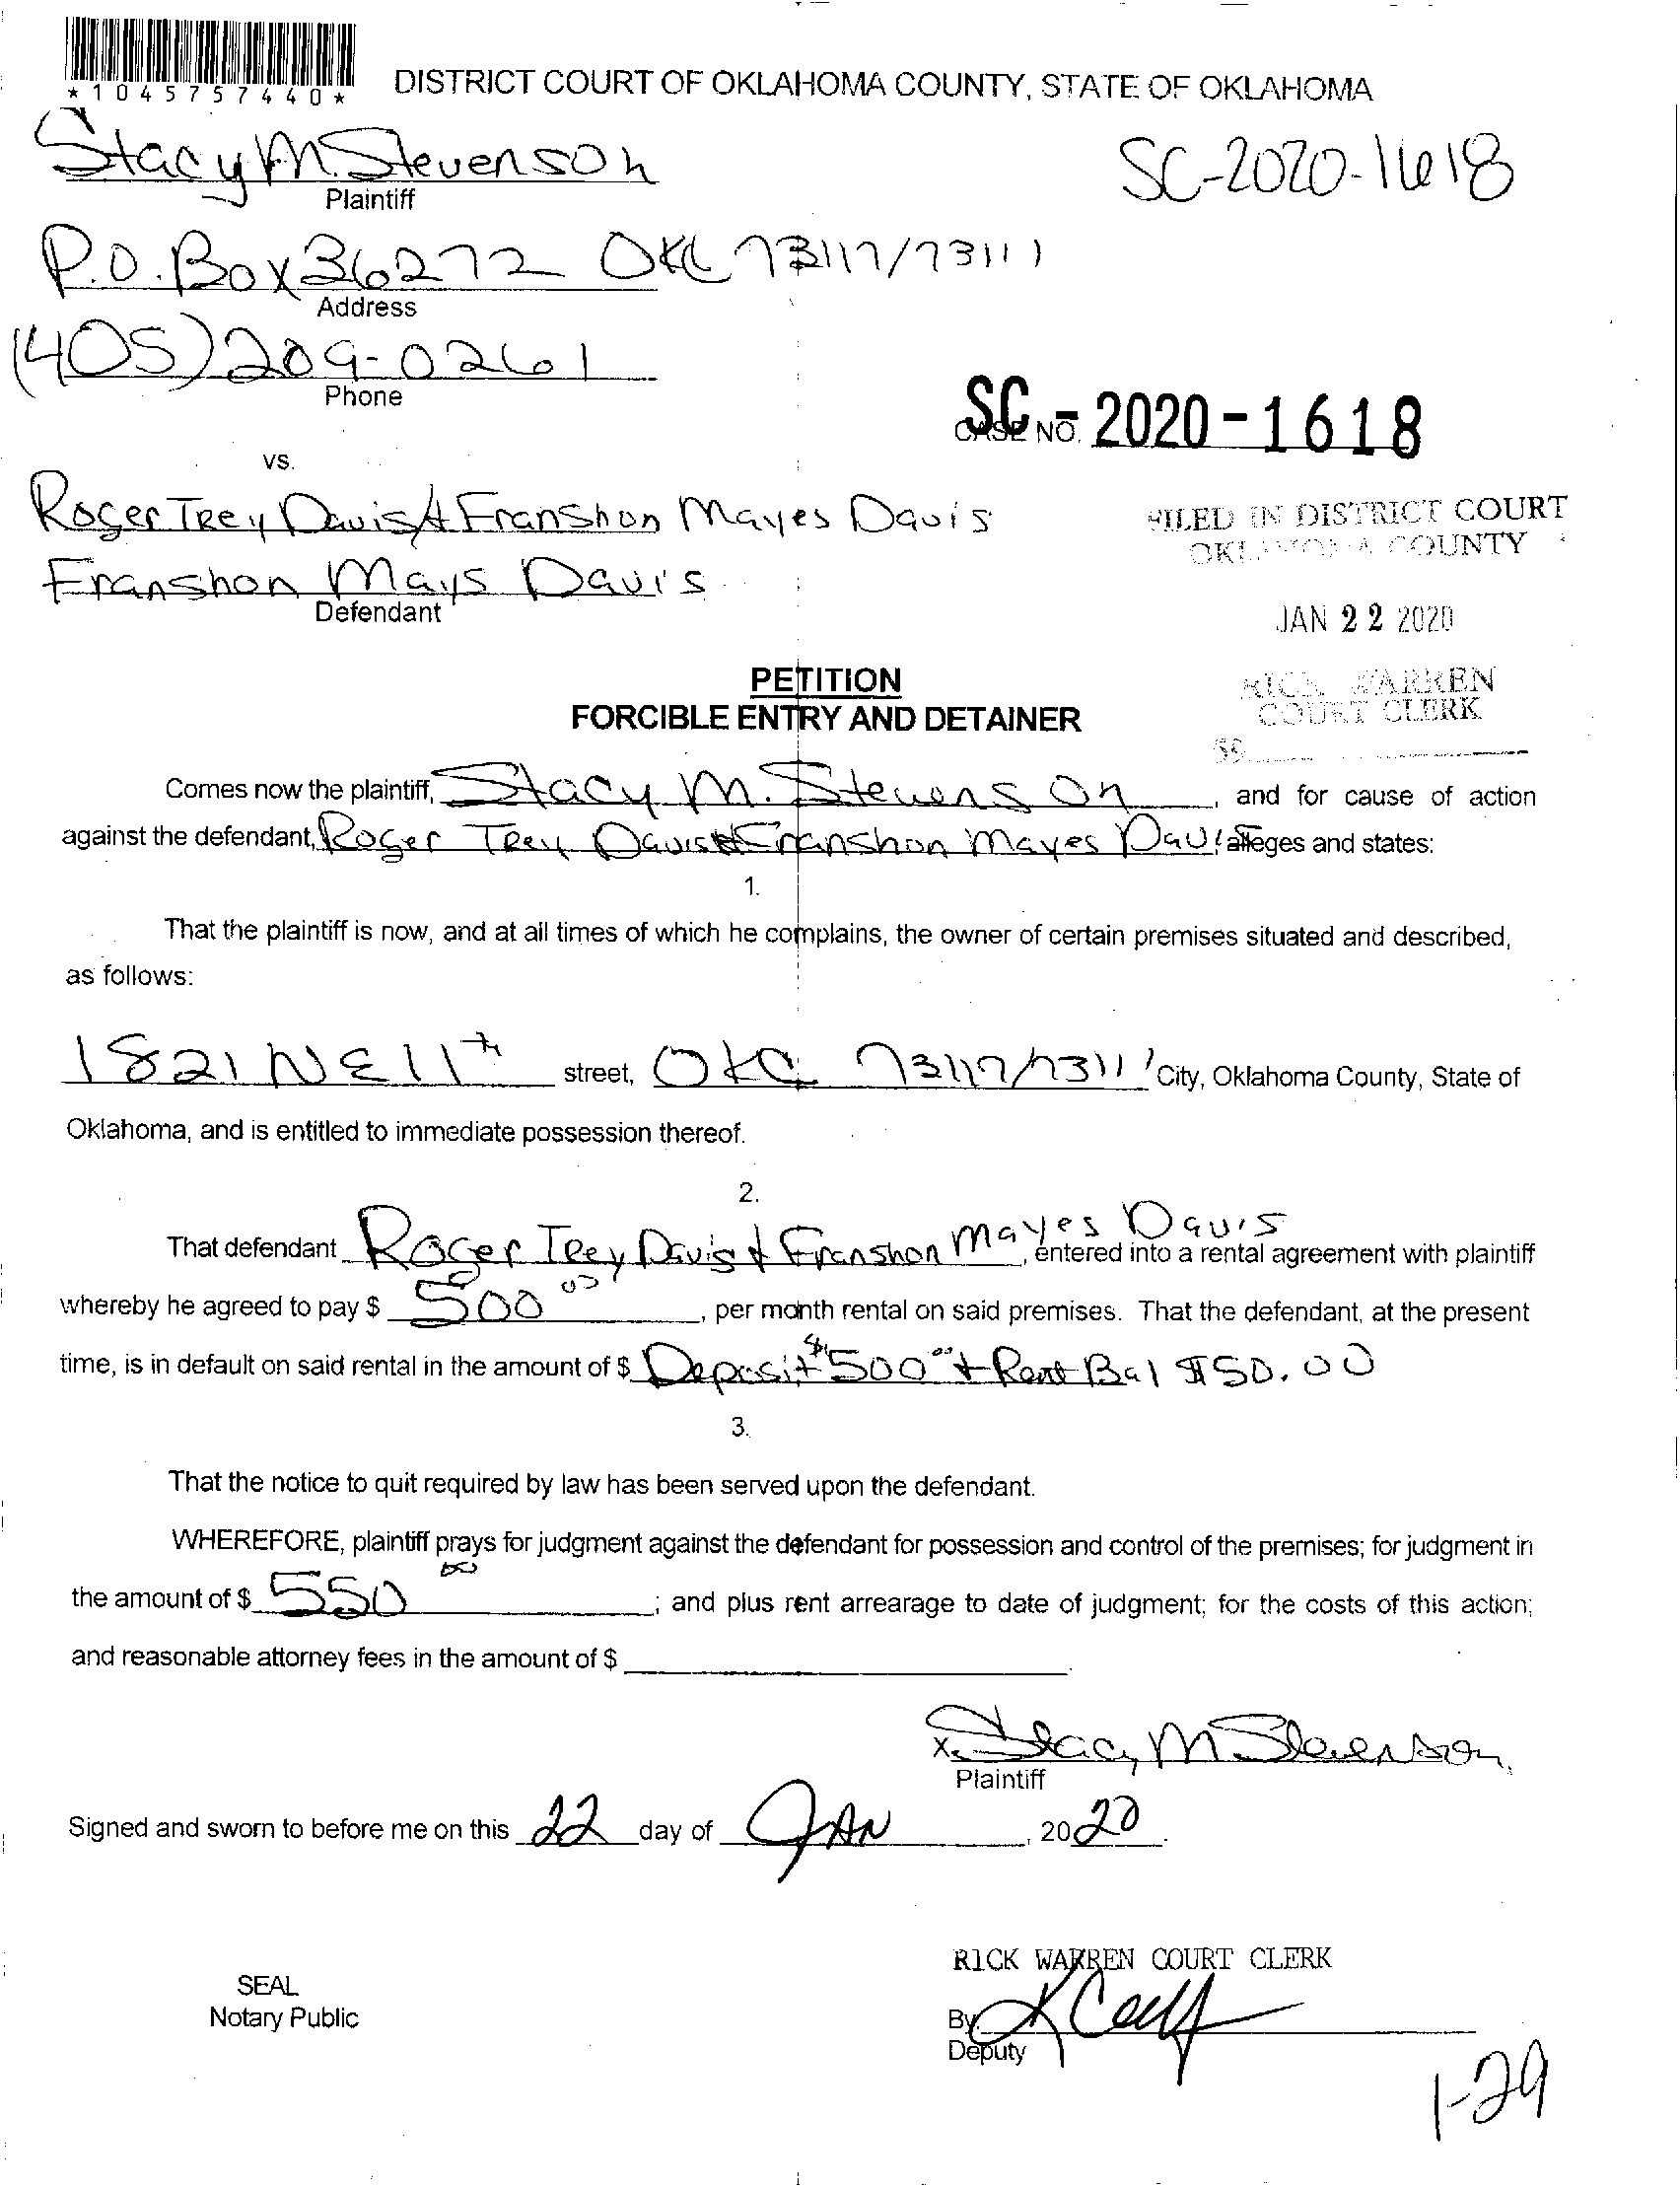 *1045757440*
DISTRICT COURT OF OKLAHOMA COUNTY, STATE OF OKLAHOMA
Stacy M. Stevenson
SC-2020-1618
Plaintiff
P.O. Box 36272 OKC 73117/73111
Address
(405) 209-0261
Phone
SC - 2020-1618
CASE NO.
vs.
Roger Trey Davis & Franshon Mayes Davis
FILED IN DISTRICT COURT
OKLAHOMA COUNTY
Franshon Mays Davis
Defendant
JAN 22 2020
PETITION
RICK WARREN
COURT CLERK
FORCIBLE ENTRY AND DETAINER
Comes now the plaintiff, Stacy M. Stevenson, and for cause of action
against the defendant, Roger Trey Davis & Franshon Mayes Davis alleges and states:
1.
That the plaintiff is now, and at all times of which he complains, the owner of certain premises situated and described,
as follows:
1821 NE 11th street, OKC 73117/73111 City, Oklahoma County, State of
Oklahoma, and is entitled to immediate possession thereof.
2.
That defendant Roger Trey Davis & Franshon Mayes Davis, entered into a rental agreement with plaintiff
whereby he agreed to pay $ 500 00, per month rental on said premises. That the defendant, at the present
time, is in default on said rental in the amount of $ Deposit $500 00 + Rent Bal $50.00
3.
That the notice to quit required by law has been served upon the defendant.
WHEREFORE, plaintiff prays for judgment against the defendant for possession and control of the premises; for judgment in
the amount of $ 550 00; and plus rent arrearage to date of judgment; for the costs of this action;
and reasonable attorney fees in the amount of $
x Stacy M Stevenson
Plaintiff
Signed and sworn to before me on this 22 day of JAN, 2020.
RICK WARREN COURT CLERK
SEAL
Notary Public
By
Deputy
1-29